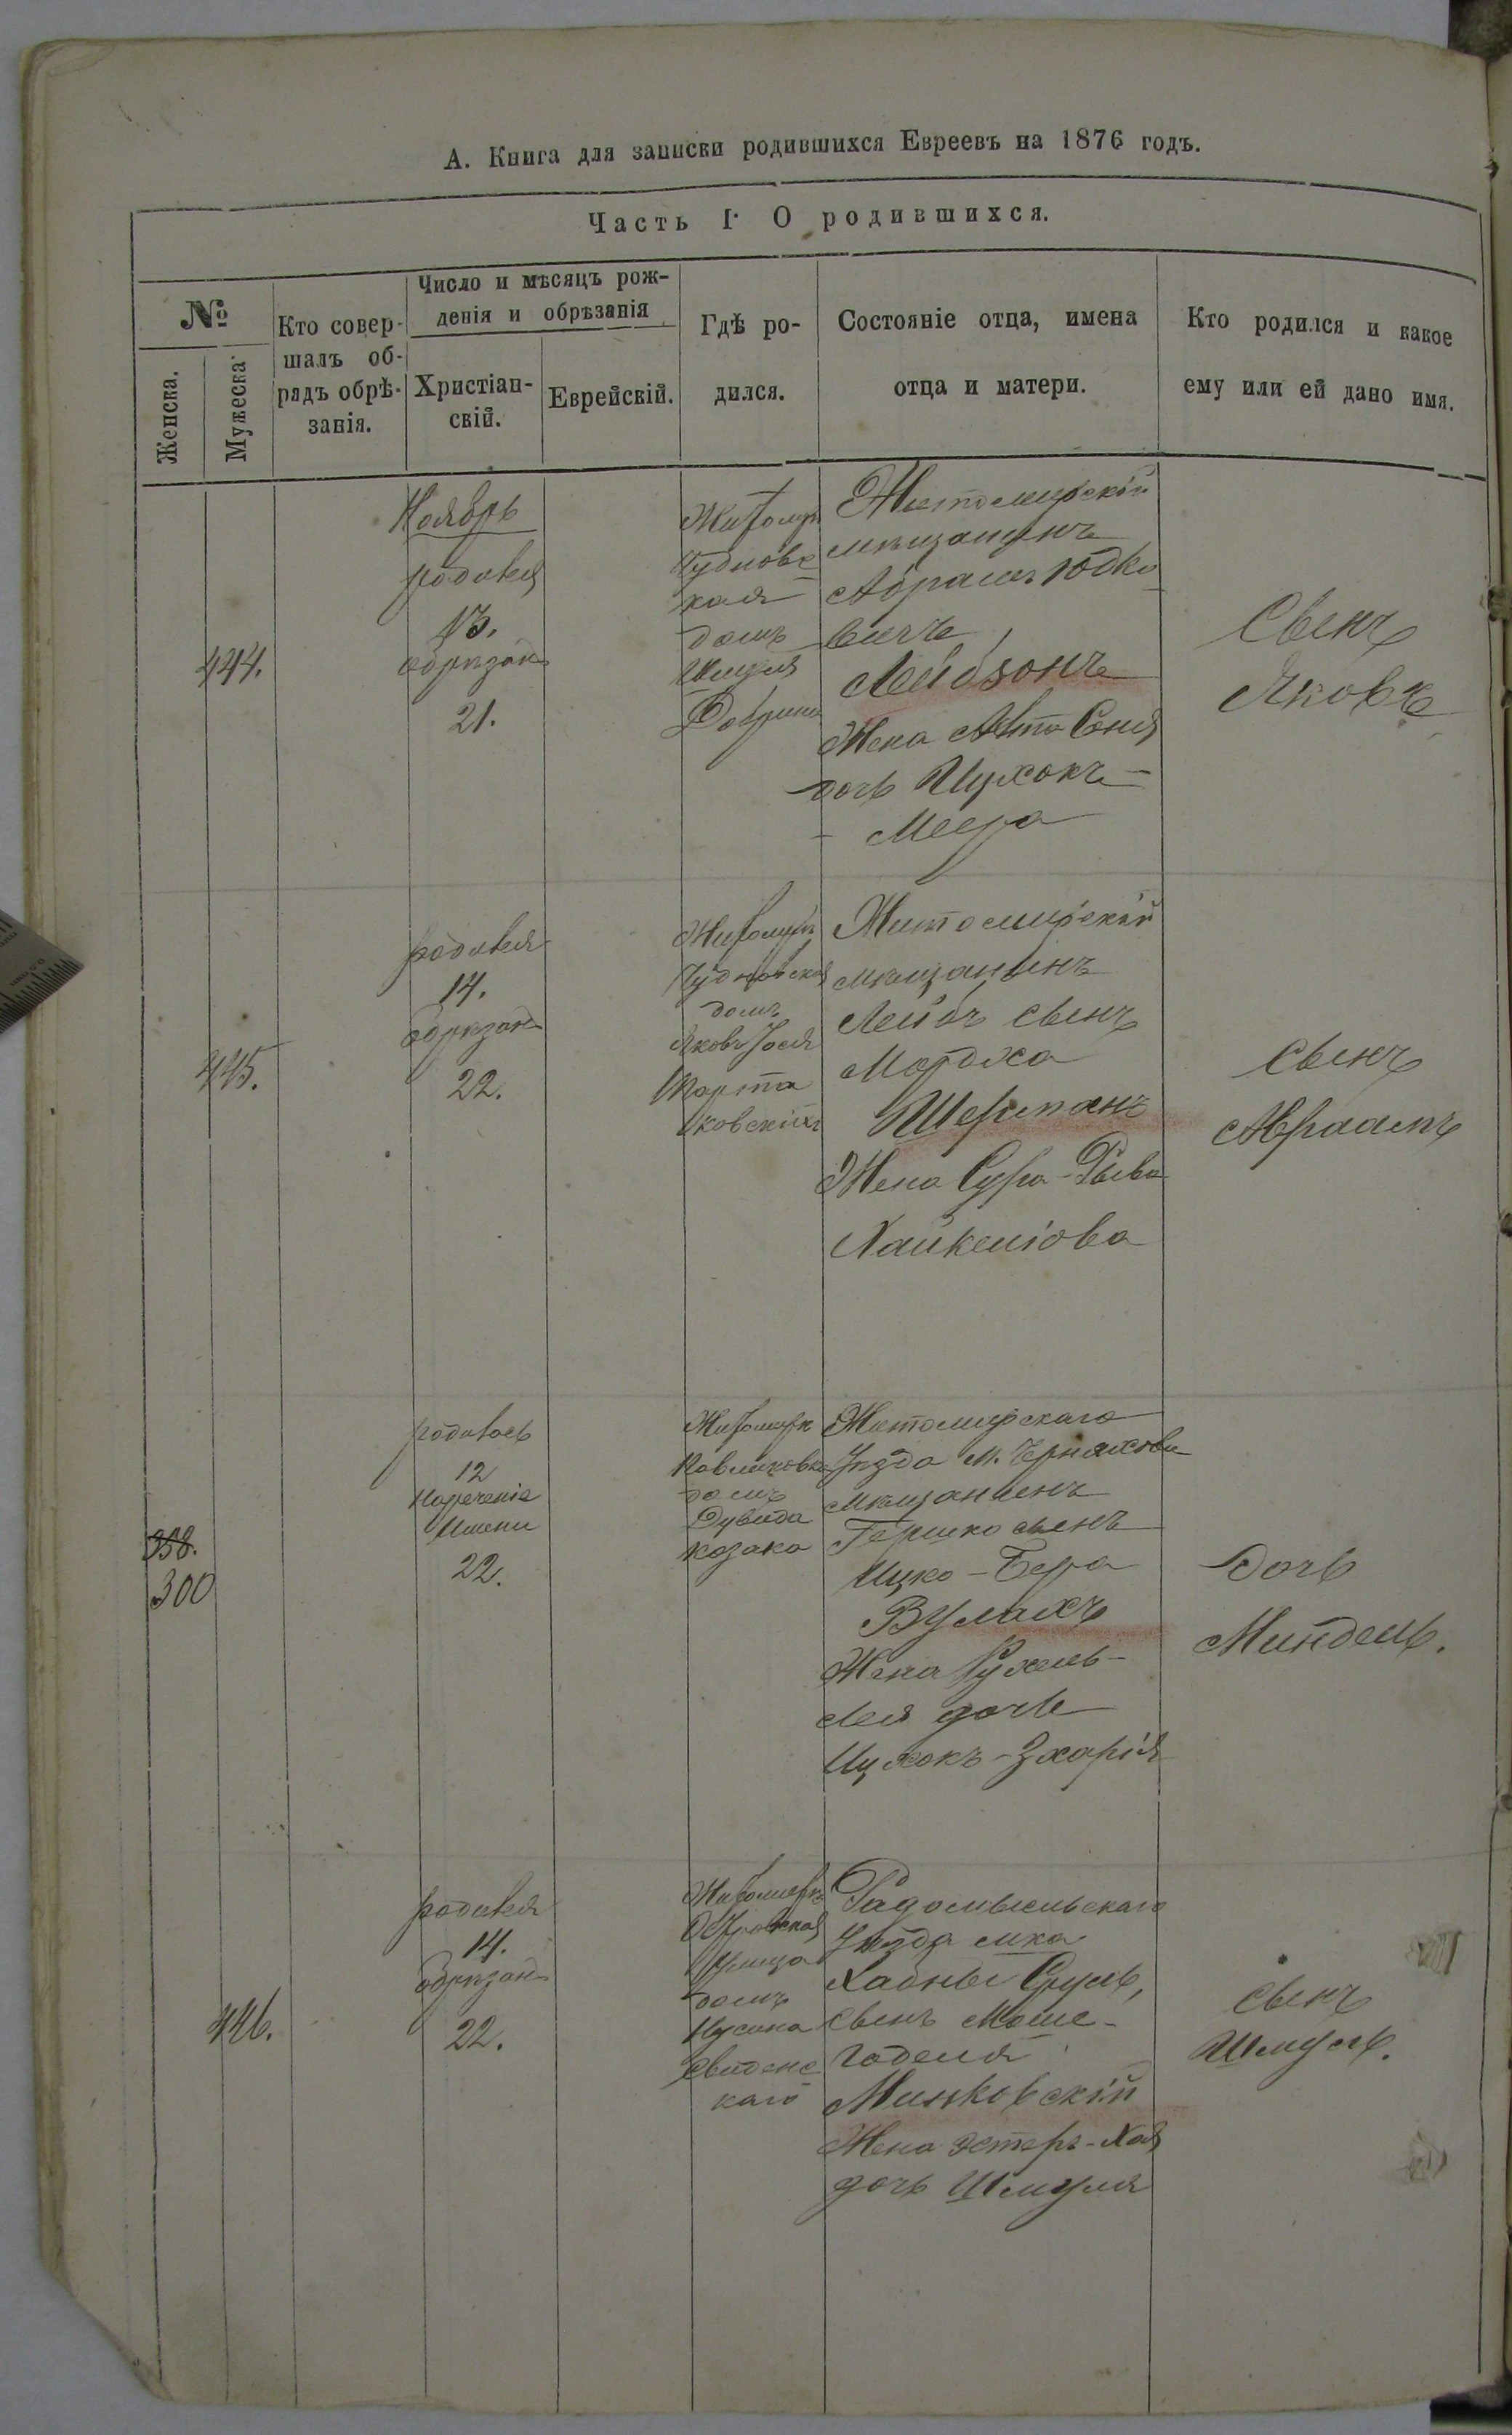 А. Книга для записки родившихся Евреевъ на 1876 годъ.
Часть I. О родившихся.
№
Женска.
Мужеска.
Кто совер-
шалъ об-
рядъ обрѣ-
занія.
Число и мѣсяцъ рож-
денія и обрѣзанія
Христіан-
скій.
Еврейскій.
Гдѣ ро-
дился.
Состояніе отца, имена
отца и матери.
Кто родился и какое
ему или ей дано имя.
444.
Ноябрь
родился
13.
обрѣзанъ
21.
Житомиръ
Чудновс
кая
домъ
Житомирскій
мѣщанинъ
Абрамъ Юдко
вичъ
Лейбзонъ
Жена Соня
дочь Ицхокъ-
- Меера
Сынъ
Яковъ
445.
родился
14.
обрѣзанъ
22.
Житомиръ
Чудновская
домъ
Яковъ Іося
Житомирскій
мѣщанинъ
Лейбъ сынъ
Мордха
Шерманъ
Жена Сура-Рыва
Хайкелiова
Сынъ
Авраамъ
358.
300
родилась
12
Нареченіе
Имени
22.
Житомиръ
Павликовка
домъ
Дувида
Козака
Житомирскаго
Уѣзда м. Черняхова
мѣщанинъ
Гершко сынъ
Ицко-Бера
Вулахъ
Жена Рухель-
Лея дочь
Ицхокъ-Зхарія
Дочь
Миндель.
446.
родился
14.
обрѣзанъ
22.
Житомиръ
улица
домъ
Нусина
Радомысльскаго
Уѣзда мка
Хабны Сруль,
сынъ Моше-
Годеля
Минковскій
Жена Эстеръ-Хая
дочь Шмуля
сынъ
Шмуль.